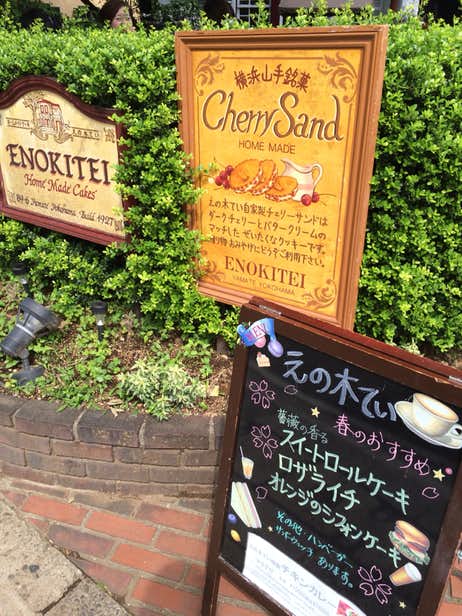 ENOKITEI
Home Made Cakes
89-6 Yamate Yokohama, Build 1927
横浜山手銘菓
Cherry Sand
HOME MADE
えの木てい自家製チェリーサンドは
ダークチェリーとバタークリームの
マッチした ぜいたくなクッキーです。
おみやげにどうぞご利用下さい。
ENOKITEI
YAMATE YOKOHAMA
えの木てい
春のおすすめ
薔薇の香る
スイートロールケーキ
ロザライチ
オレンジのシフォンケーキ
その他・ハンバーガー
サンドウィッチ あります。
チキンカレー